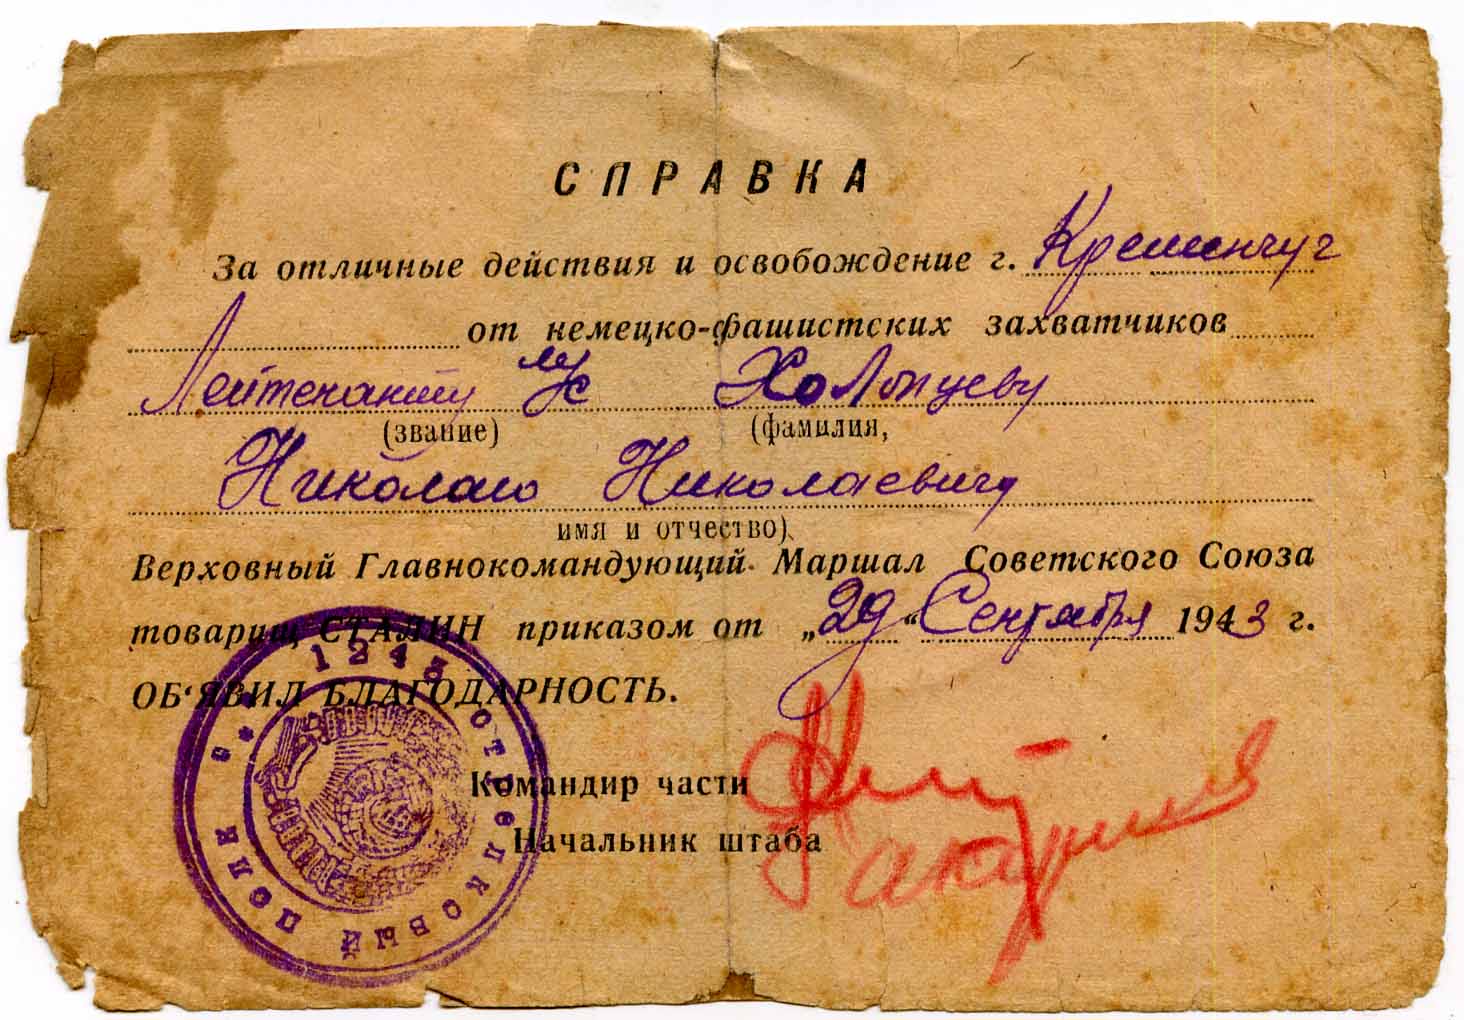 СПРАВКА
За отличные действия и освобождение г. Кременчуг
от немецко-фашистских захватчиков
Лейтенанту м/с Холопцеву
(звание) (фамилия,
Николаю Николаевичу
имя и отчество)
Верховный Главнокомандующий Маршал Советского Союза
товарищ СТАЛИН приказом от „29“ Сентября 1943 г.
ОБ‘ЯВИЛ БЛАГОДАРНОСТЬ.
Командир части
Начальник штаба
1243 СТРЕЛКОВЫЙ ПОЛК